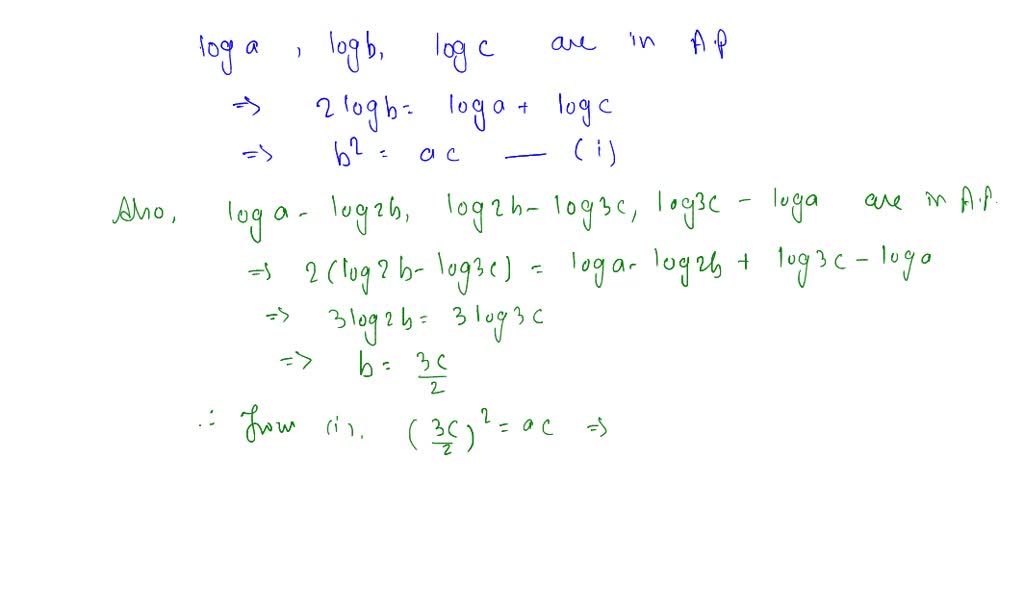 log a , log b, log c are in A.P
=> 2 log b = log a + log c
=> b² = ac — (i)
Also, log a - log 2b, log 2b - log 3c, log 3c - log a are in A.P.
=> 2(log 2b - log 3c) = log a - log 2b + log 3c - log a
=> 3 log 2b = 3 log 3c
=> b = 3c/2
∴ from (i). (3c/2)² = ac =>